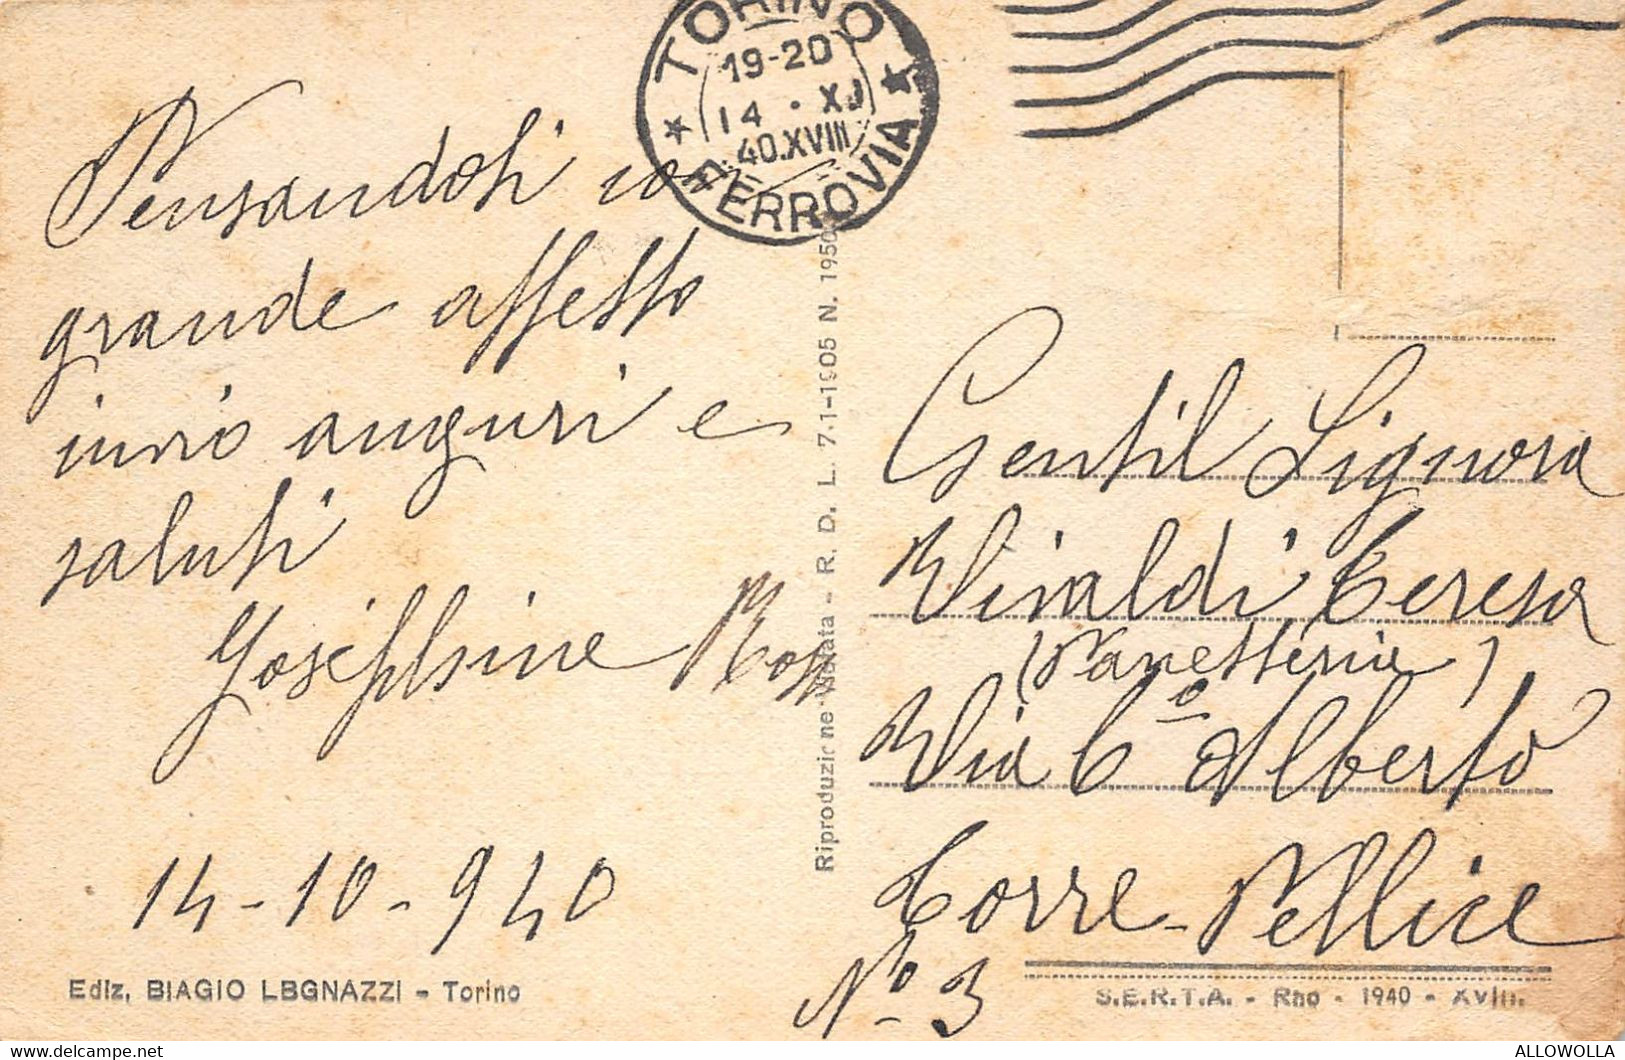 TORINO
19-20
14 · XI
40.XVIII
FERROVIA
Pensandoti con
grande affetto
invio auguri e
saluti
Josephine
14-10-940
Ediz. BIAGIO LBGNAZZI - Torino
Riproduzione Vietata - R. D. L. 7-1-1905 N. 1950
Gentil Signora
Vivaldi Teresa
(Panetteria)
Via C.º Alberto
Torre-Pellice
Nº 3
S.E.R.T.A. - Rho - 1940 - XVIII.
https://www.delcampe.net
ALLOWOLLA